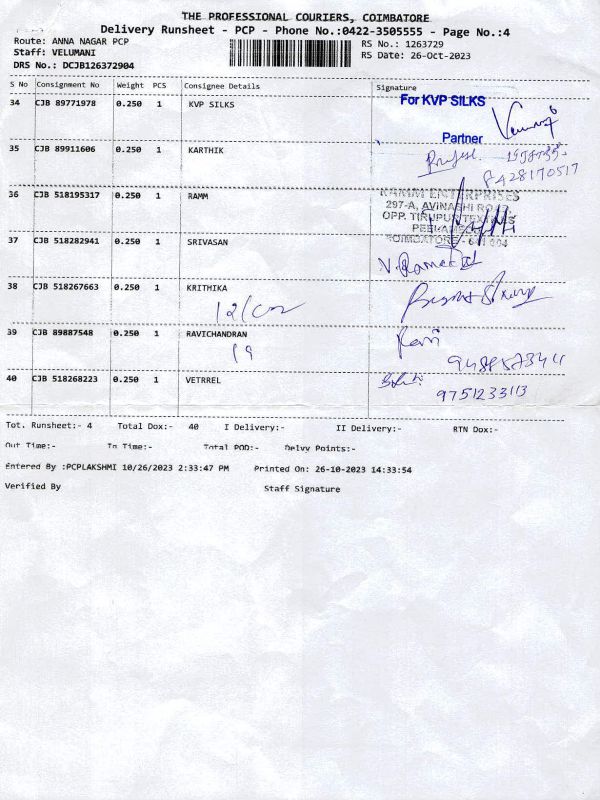 THE PROFESSIONAL COURIERS, COIMBATORE
Delivery Runsheet - PCP - Phone No.:0422-3505555 - Page No.:4
Route: ANNA NAGAR PCP
RS No.: 1263729
Staff: VELUMANI
RS Date: 26-Oct-2023
DRS No.: DCJB126372904
S No Consignment No Weight PCS Consignee Details Signature
34 CJB 89771978 0.250 1 KVP SILKS
For KVP SILKS
Partner
35 CJB 89911606 0.250 1 KARTHIK
8428170517
36 CJB 518195317 0.250 1 RAMM
RAMM ENTERPRISES
297-A, AVINASHI ROAD
OPP. TIRUPUR TEXTILES
PEELAMEDU
COIMBATORE - 641 004
37 CJB 518282941 0.250 1 SRIVASAN
38 CJB 518267663 0.250 1 KRITHIKA
39 CJB 89887548 0.250 1 RAVICHANDRAN
Ravi
40 CJB 518268223 0.250 1 VETRREL
9751233113
Tot. Runsheet:- 4 Total Dox:- 40 I Delivery:- II Delivery:- RTN Dox:-
Out Time:- In Time:- Total POD:- Delvy Points:-
Entered By :PCPLAKSHMI 10/26/2023 2:33:47 PM Printed On: 26-10-2023 14:33:54
Verified By Staff Signature